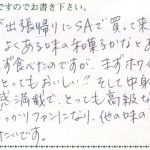 ですのでお書き下さい。
が出張帰りにSAで買って来
よくある味の和菓子かなとあ
ず食べたのですが、まずホワイ
とってもおいしい!! そして中身
感満載で、とっても高級な
っかりファンになり、他の味の
たいです。